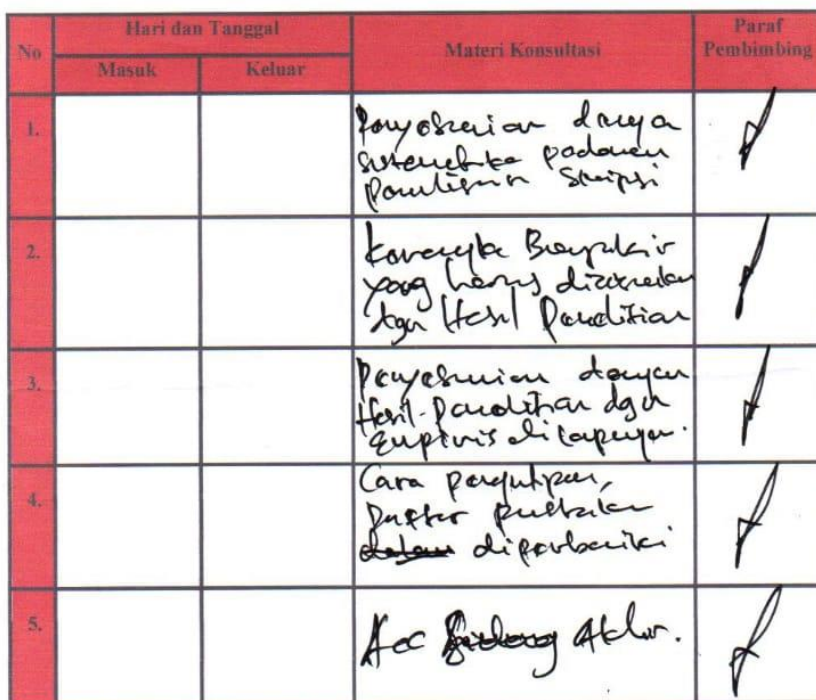 No
Hari dan Tanggal
Materi Konsultasi
Paraf
Pembimbing
Masuk
Keluar
1.
Penyesuaian dengan
sistematika pedoman
penulisan Skripsi
2.
Kerangka Berpikir
yang harus disesuaikan
dgn Hasil Penelitian
3.
Penyesuaian dengan
Hasil Penelitian dgn
empiris di lapangan.
4.
Cara pengutipan,
Daftar pustaka
diperbaiki
5.
Acc Sidang Akhir.